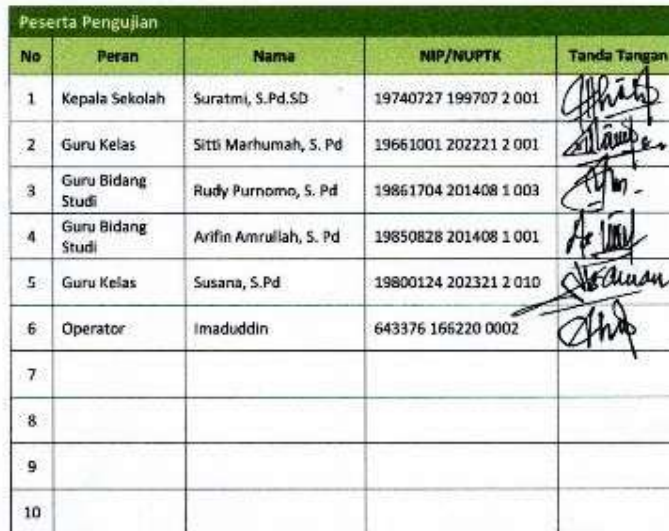 Peserta Pengujian
No Peran Nama NIP/NUPTK Tanda Tangan
1 Kepala Sekolah Suratmi, S.Pd.SD 19740727 199707 2 001
2 Guru Kelas Sitti Marhumah, S. Pd 19661001 202221 2 001
3 Guru Bidang Studi Rudy Purnomo, S. Pd 19861704 201408 1 003
4 Guru Bidang Studi Arifin Amrullah, S. Pd 19850828 201408 1 001
5 Guru Kelas Susana, S.Pd 19800124 202321 2 010
6 Operator Imaduddin 643376 166220 0002
7
8
9
10